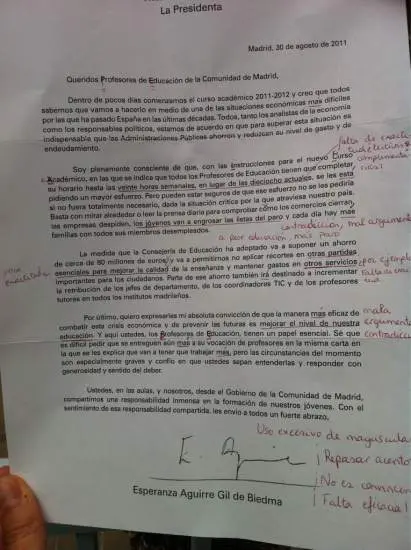 La Presidenta
Madrid, 30 de agosto de 2011
Queridos Profesores de Educación de la Comunidad de Madrid,
Dentro de pocos días comenzamos el curso académico 2011-2012 y creo que todos
sabemos que vamos a hacerlo en medio de una de las situaciones económicas mas difíciles
por las que ha pasado España en las últimas décadas. Todos, tanto los analistas de la economía
como los responsables políticos, estamos de acuerdo en que para superar esta situación es
indispensable que las Administraciones Públicas ahorren y reduzcan su nivel de gasto y de
endeudamiento.
falta de exacti
tud
Soy plenamente consciente de que, con las instrucciones para el nuevo Curso
complementa
Académico, en las que se indica que todos los Profesores de Educación tienen que completar
rios?
su horario hasta las veinte horas semanales, en lugar de las dieciocho actuales, se les está
pidiendo un mayor esfuerzo. Pero pueden estar seguros de que ese esfuerzo no se les pediría
si no fuera totalmente necesario, dada la situación crítica por la que atraviesa nuestro país.
Basta con mirar alrededor o leer la prensa diaria para comprobar cómo los comercios cierran,
las empresas despiden, los jóvenes van a engrosar las listas del paro y cada día hay mas
familias con todos sus miembros desempleados.
contradiccion, mal argumento
a peor educación, más paro
La medida que la Consejería de Educación ha adoptado va a suponer un ahorro
de cerca de 80 millones de euros, y va a permitirnos no aplicar recortes en otras partidas
esenciales para mejorar la calidad de la enseñanza y mantener gastos en otros servicios
¿por ejemplo
importantes para los ciudadanos. Parte de ese ahorro también irá destinado a incrementar
falta de
la retribución de los jefes de departamento, de los coordinadores TIC y de los profesores
tutores en todos los institutos madrileños.
Por último, quiero expresarles mi absoluta convicción de que la manera mas eficaz de
mala
combatir esta crisis económica y de prevenir las futuras es mejorar el nivel de nuestra
argumenta
educación. Y aquí ustedes, los Profesores de Educación, tienen un papel esencial. Sé que
contradicci
es difícil pedir que se entreguen aún mas a su vocación de profesores en la misma carta en
la que se les explica que van a tener que trabajar mas, pero las circunstancias del momento
son especialmente graves y confío en que ustedes sepan entenderlas y responder con
generosidad y sentido del deber.
Ustedes, en las aulas, y nosotros, desde el Gobierno de la Comunidad de Madrid,
compartimos una responsabilidad inmensa en la formación de nuestros jóvenes. Con el
sentimiento de esa responsabilidad compartida, les envío a todos un fuerte abrazo,
Uso excesivo de mayúsculas
¡Repasar acento
¡No es convincen
¡Falta eficacia!
Esperanza Aguirre Gil de Biedma